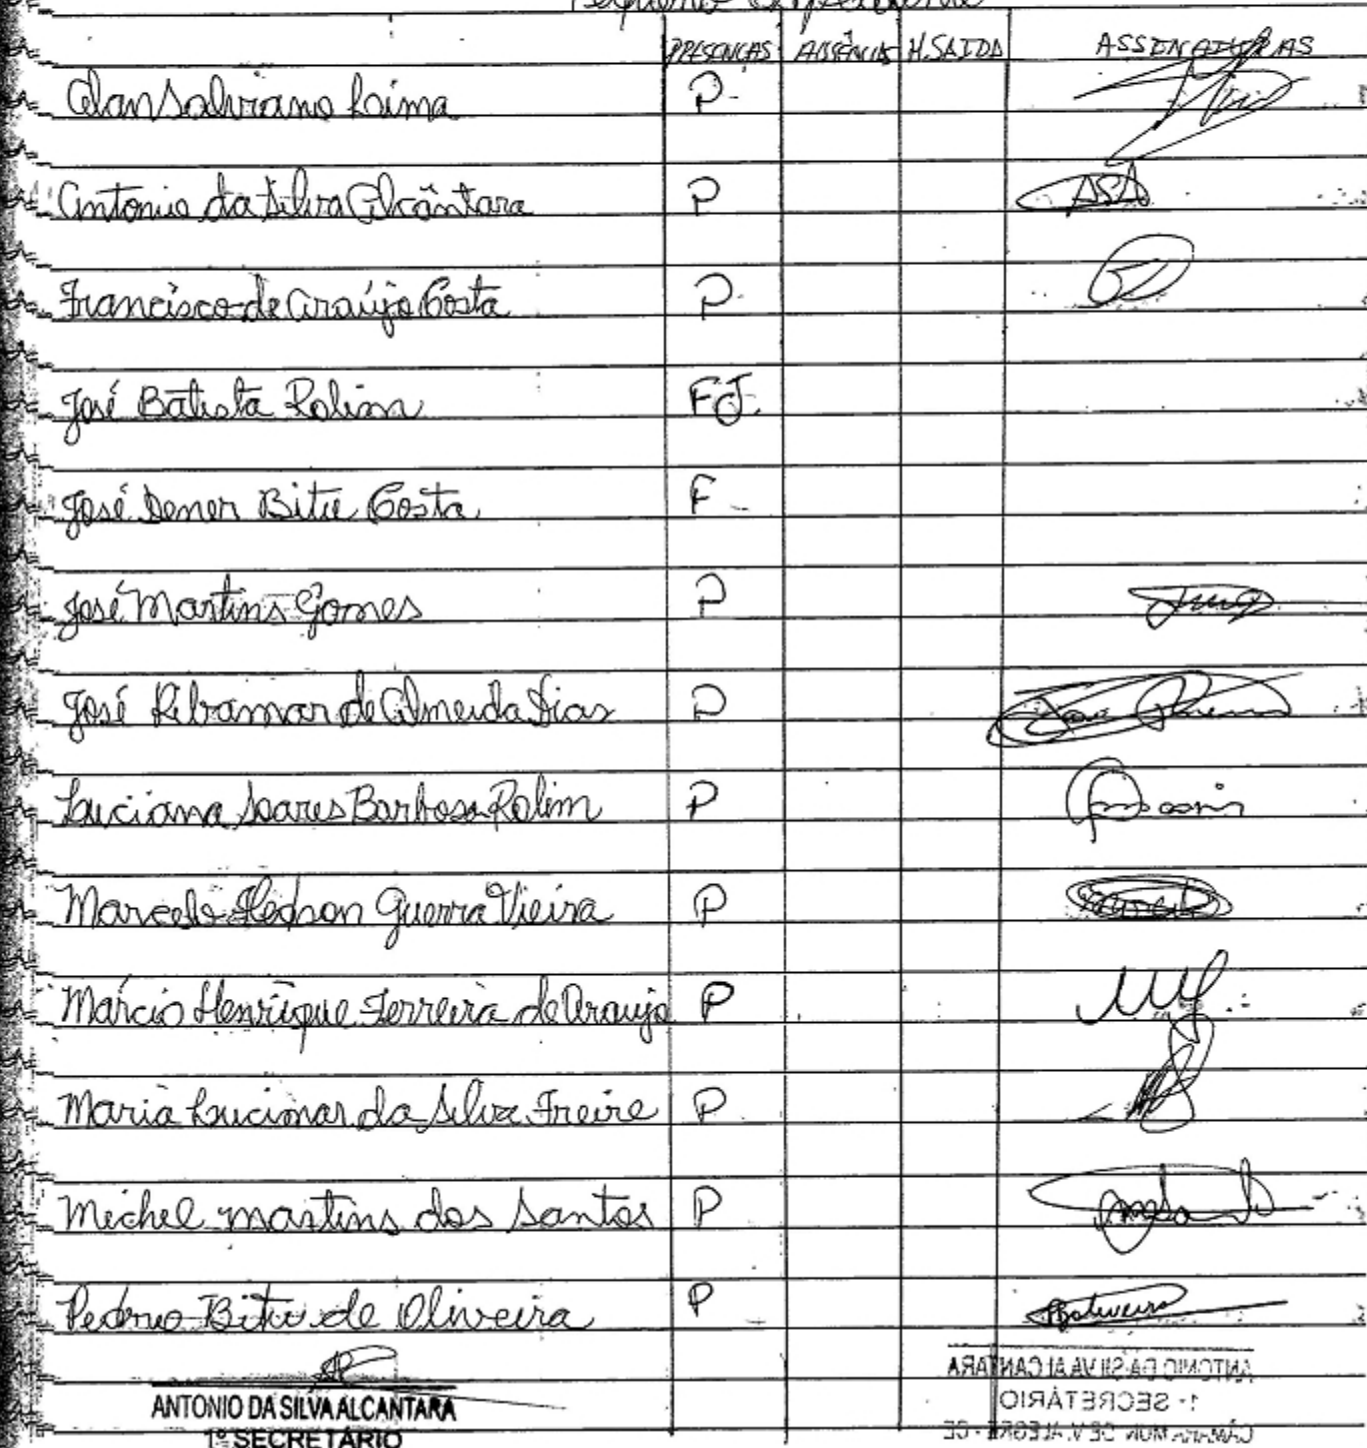 Pequeno Expediente
PRESENÇAS AUSÊNCIAS H.SAIDA ASSINATURAS
Alan Salviano Lima P
Antonio da Silva Alcântara P ASA
Francisco de Araújo Costa P
José Batista Rolim FJ
José Dener Bitu Costa F
José Martins Gomes P
José Ribamar de Almeida Dias P
Luciana Soares Barbosa Rolim P
Marcelo Hedson Guerra Vieira P
Márcio Henrique Ferreira de Araujo P
Maria Lucimar da Silva Freire P
Michel Martins dos Santos P
Pedro Bitu de Oliveira P
ANTONIO DA SILVA ALCANTARA
1º SECRETÁRIO
ANTONIO DA SILVA ALCANTARA
1º SECRETÁRIO
CÂMARA MUN. DE V. ALEGRE - CE